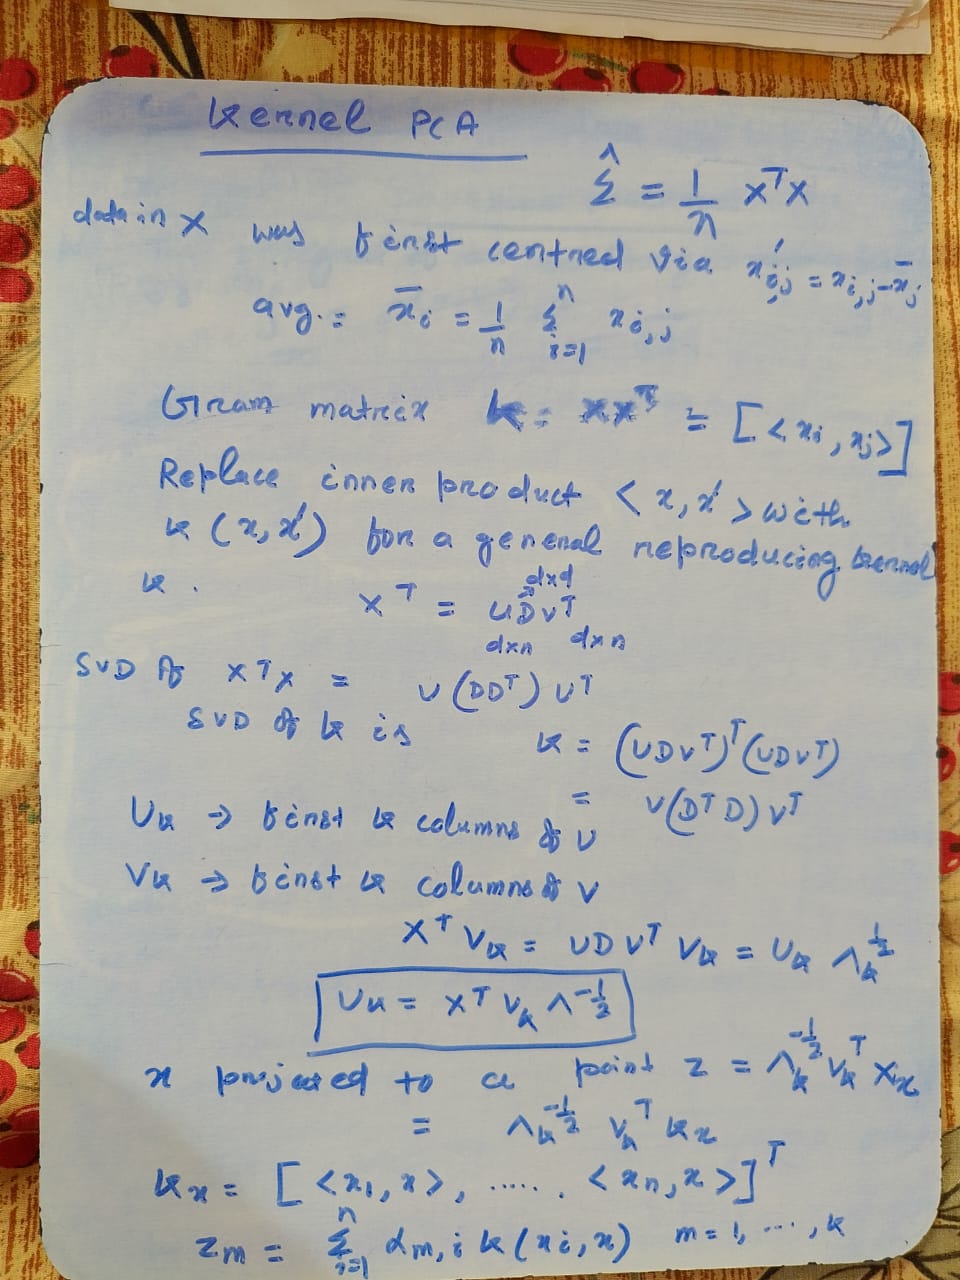 Kernel PCA
Σ̂ = 1/n X^T X
data in X was first centred via x'_{i,j} = x_{i,j} - x̄_j
avg. = x̄_i = 1/n Σ_{i=1}^{n} x_{i,j}
Gram matrix K = XX^T = [<x_i, x_j>]
Replace inner product <x, x'> with
k (x, x') for a general reproducing kernel
k .
d×d
X^T = U D V^T
d×n d×n
SVD of X^T X = U (DD^T) U^T
SVD of K is K = (UDV^T)^T (UDV^T)
= V(D^T D) V^T
U_k → first k columns of U
V_k → first k columns of V
X^T V_k = UDV^T V_k = U_k Λ_k^{1/2}
U_k = X^T V_k Λ^{-1/2}
x projected to a point z = Λ_k^{-1/2} V_k^T X x
= Λ_k^{-1/2} V_k^T k_x
k_x = [<x_1, x>, ..... . <x_n, x>]^T
z_m = Σ_{i=1}^{n} α_{m,i} k(x_i, x) m = 1, ... , k